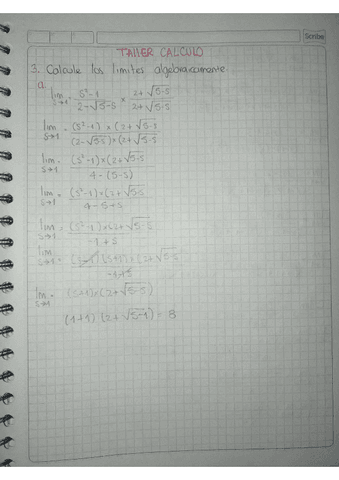 Scribe
TALLER CALCULO
3. Calcule los limites algebraicamente
a.
lim s→1 = (s²-1)/(2-√5-s) × (2+√5-s)/(2+√5-s)
lim s→1 = ((s²-1)×(2+√5-s))/((2-√5-s)×(2+√5-s))
lim s→1 = ((s²-1)×(2+√5-s))/(4-(5-s))
lim s→1 = ((s²-1)×(2+√5-s))/(4-5+s)
lim s→1 = ((s²-1)×(2+√5-s))/(-1+s)
lim s→1 = ((s-1)(s+1)×(2+√5-s))/(-1+s)
lim s→1 = (s+1)×(2+√5-s)
(1+1)(2+√5-1) = 8